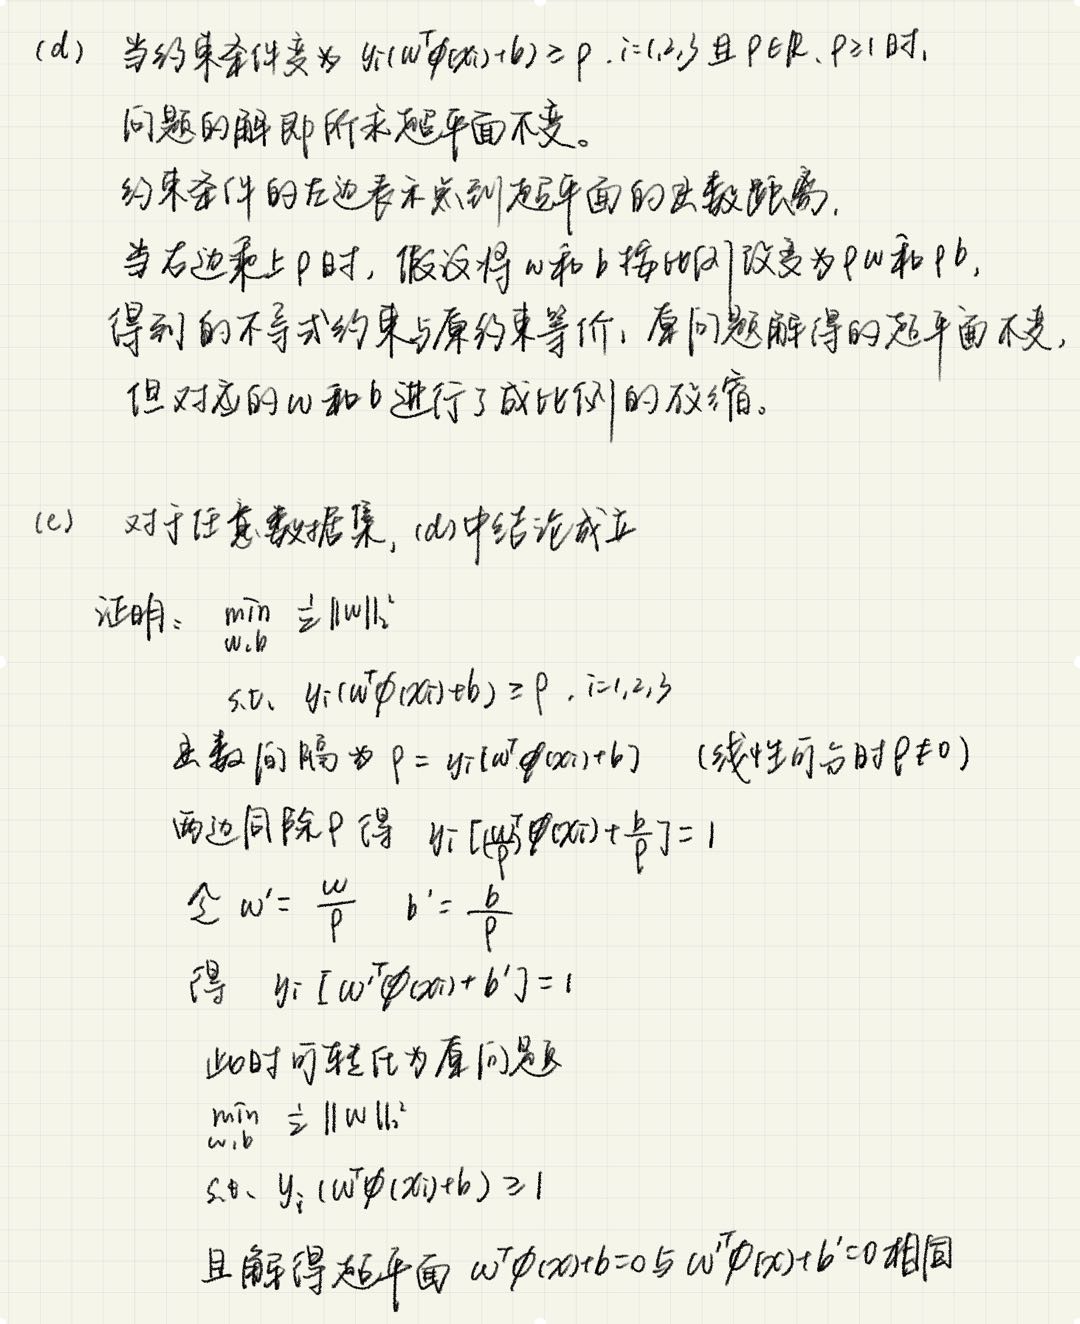 (d) 当约束条件变为 yᵢ(wᵀφ(xᵢ)+b) ≥ ρ, i=1,2,3 且 ρ∈R, ρ≥1 时,
问题的解即所求超平面不变。
约束条件的左边表示点到超平面的函数距离,
当右边乘上ρ时, 假设将w和b按比例改变为ρw和ρb,
得到的不等式约束与原约束等价, 原问题解得的超平面不变,
但对应的w和b进行了成比例的放缩。
(e) 对于任意数据集, (d)中结论成立
证明: min ½||w||₂²
w,b
s.t. yᵢ(wᵀφ(xᵢ)+b) ≥ ρ, i=1,2,3
函数间隔为 ρ = yᵢ[wᵀφ(xᵢ)+b] (线性可分时ρ≠0)
两边同除ρ得 yᵢ[(w/ρ)ᵀφ(xᵢ)+b/ρ]=1
令 w'=w/ρ b'=b/ρ
得 yᵢ[w'ᵀφ(xᵢ)+b']=1
此时可转化为原问题
min ½||w||₂²
w,b
s.t. yᵢ(wᵀφ(xᵢ)+b) ≥ 1
且解得超平面 wᵀφ(x)+b=0与w'ᵀφ(x)+b'=0相同